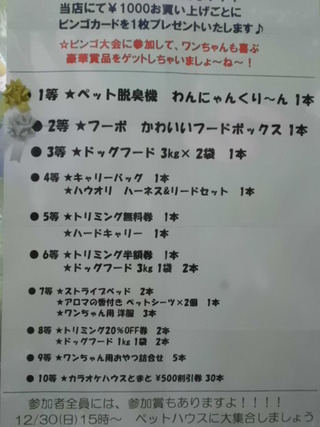 当店にて￥1000お買い上げごとに
ビンゴカードを1枚プレゼントいたします♪
☆ビンゴ大会に参加して、ワンちゃんも喜ぶ
豪華賞品をゲットしちゃいましょ～ね～！
1等 ★ペット脱臭機 わんにゃんくり～ん 1本
● 2等 ★フーボ かわいいフードボックス 1本
● 3等 ★ドッグフード 3kg×2袋 1本
● 4等 ★キャリーバッグ 1本
★ハウオリ ハーネス&リードセット 1本
● 5等 ★トリミング無料券 1本
★ハードキャリー 1本
● 6等 ★トリミング半額券 1本
★ドッグフード 3kg 1袋 2本
● 7等 ★ストライプベッド 2本
★アロマの香付き ペットシーツ×2個 1本
★ワンちゃん用 洋服 3本
● 8等 ★トリミング20%OFF券 2本
★ドッグフード 1kg 1袋 2本
● 9等 ★ワンちゃん用おやつ詰合せ 5本
● 10等 ★カラオケハウスとまと ￥500割引券 30本
参加者全員には、参加賞もありますよ！！！！
12/30(日)15時～ ペットハウスに大集合しましょう